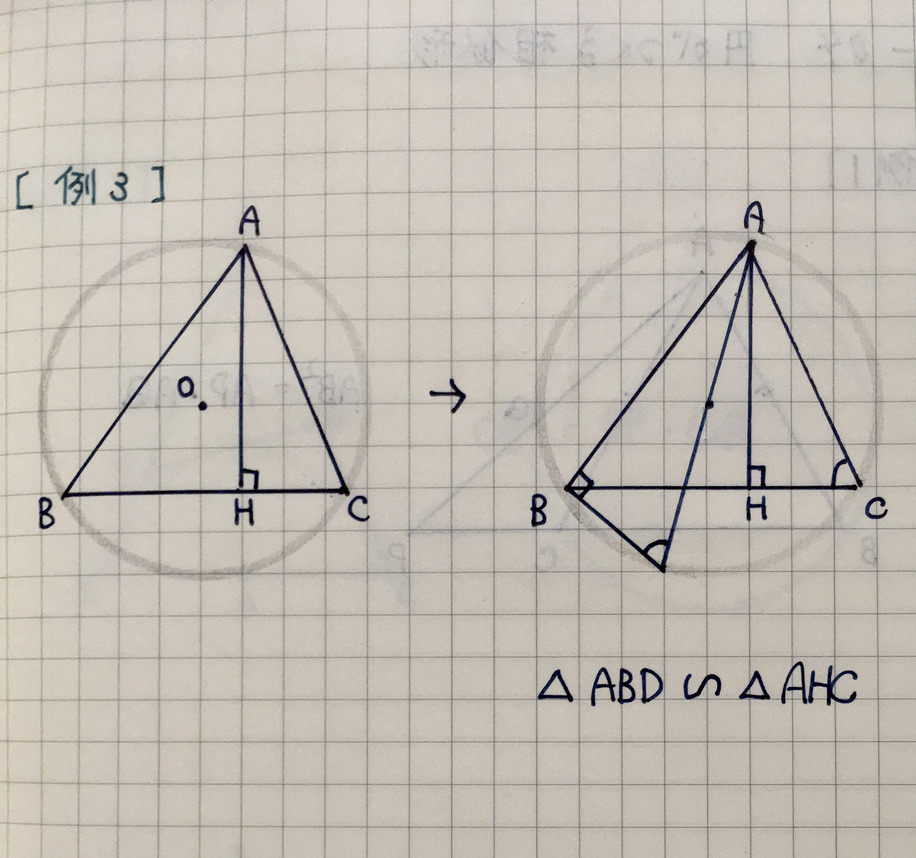 [例3]
A
O
B
H
C
→
A
B
H
C
△ABD ∽ △AHC